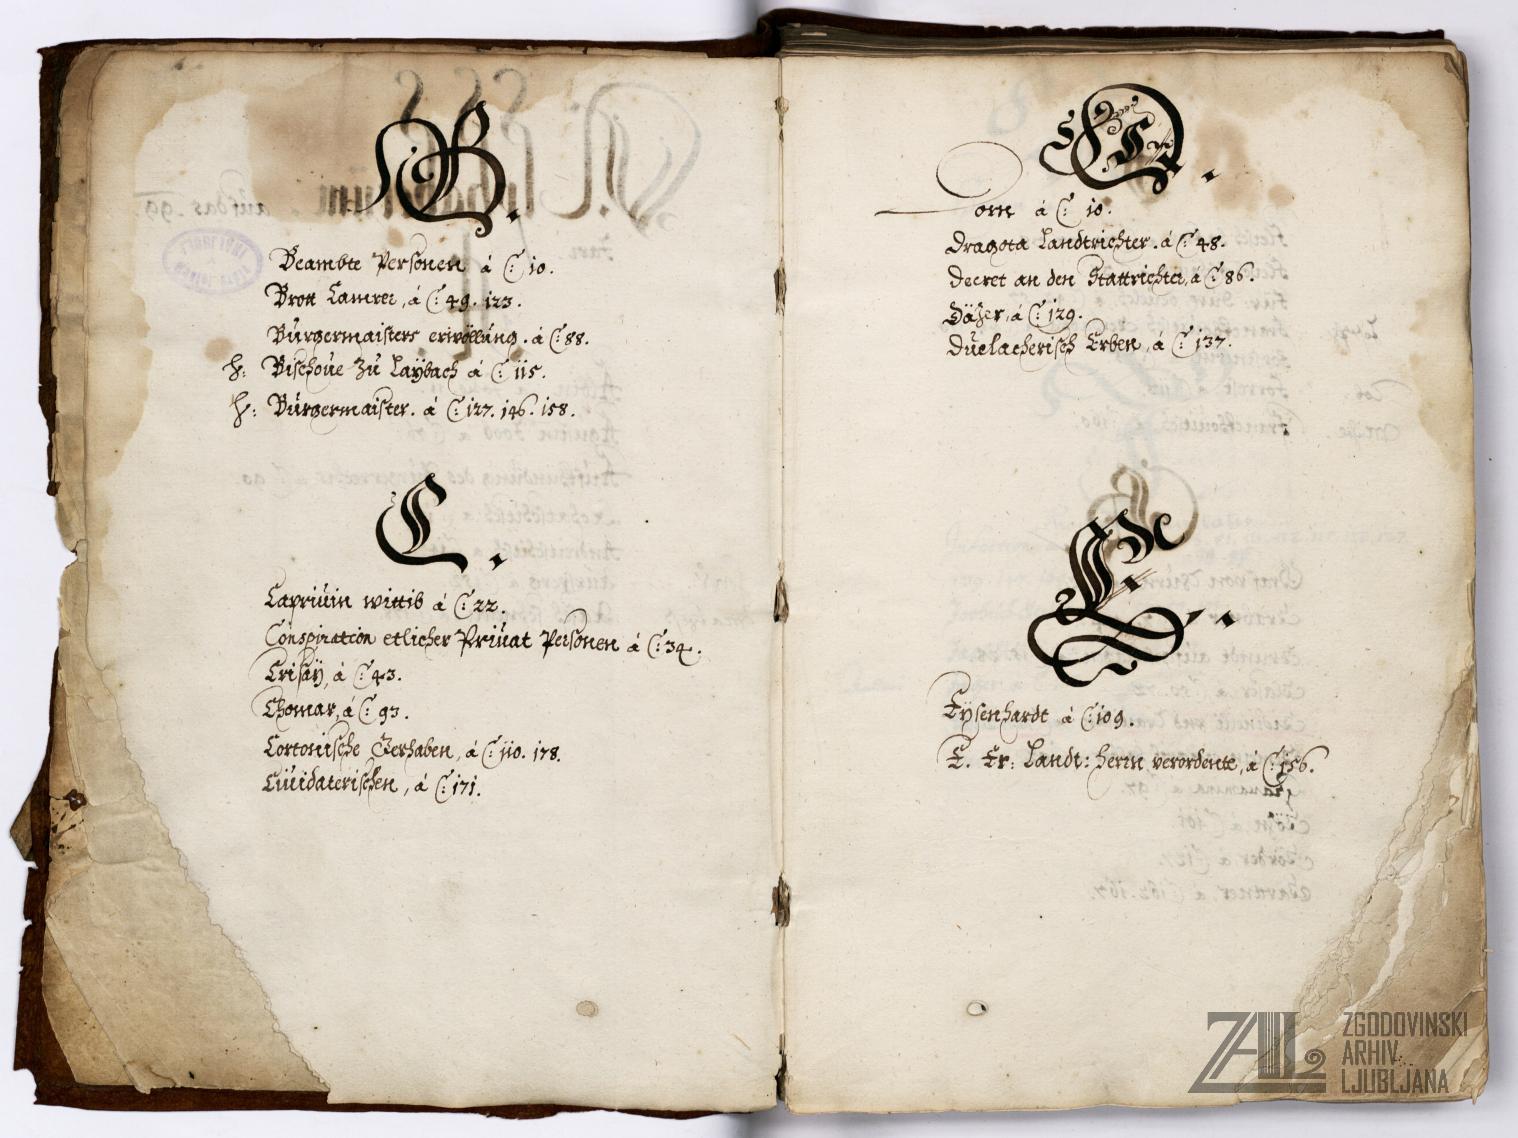 B.
Beambte Personen á C: 10.
Brott Camrer, á C: 49. 123.
Bürgermaisters erwöllung. á C: 88.
H: Bischoue Zu Laÿbach á C: 115.
H: Bürgermaister. á C: 127. 146. 158.
C.
Capriuin wittib á C: 22.
Conspiration etlicher Priuat Personen á C: 34.
Crisaÿ, á C: 43.
Chomar, á C: 93.
Cortonische Gerhaben, á C: 110. 178.
Ciuidaterischen, á C: 171.
D.
Dom á C: 10.
Dragota Landtrichter. á C: 48.
Decret an den Stattrichter, á C: 86.
Däzer, á C: 129.
Duelacherisch Erben, á C: 137.
E.
Eysenhardt á C: 109.
E. Er: Landt: herrn verordente, á C: 156.
ZAL
ZGODOVINSKI
ARHIV
LJUBLJANA